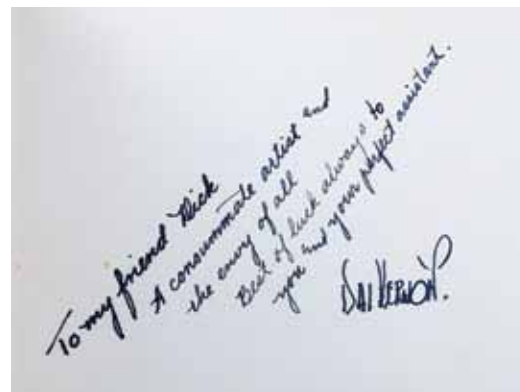 To my friend Dick
A consummate artist and
the envy of all
Best of luck always to
you and your perfect assistant.
DAI VERNON.